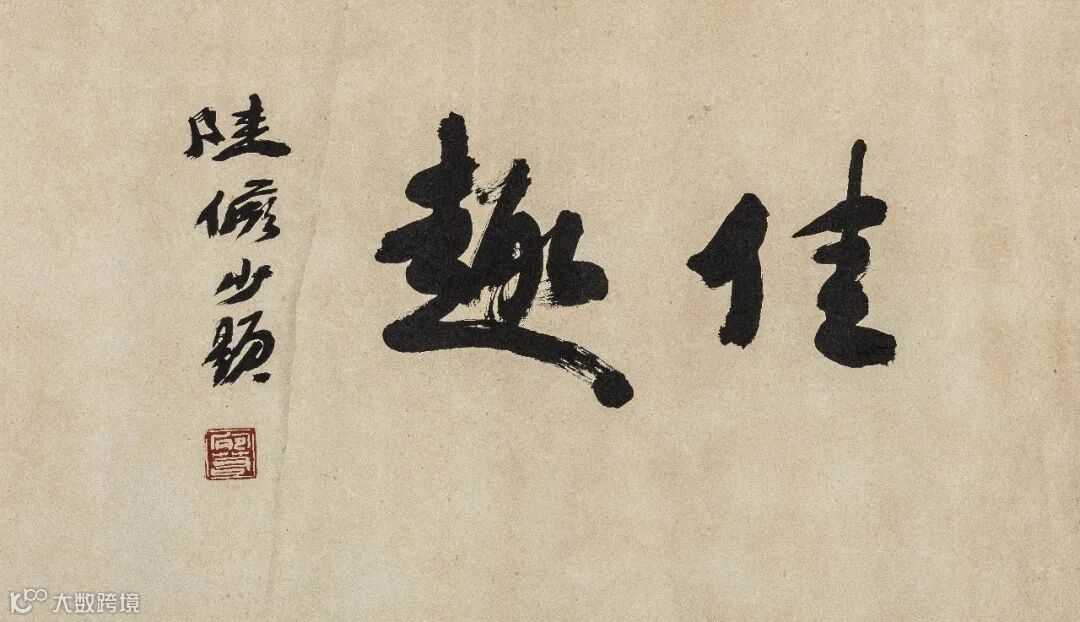 佳趣
陆俨少题
大数跨境